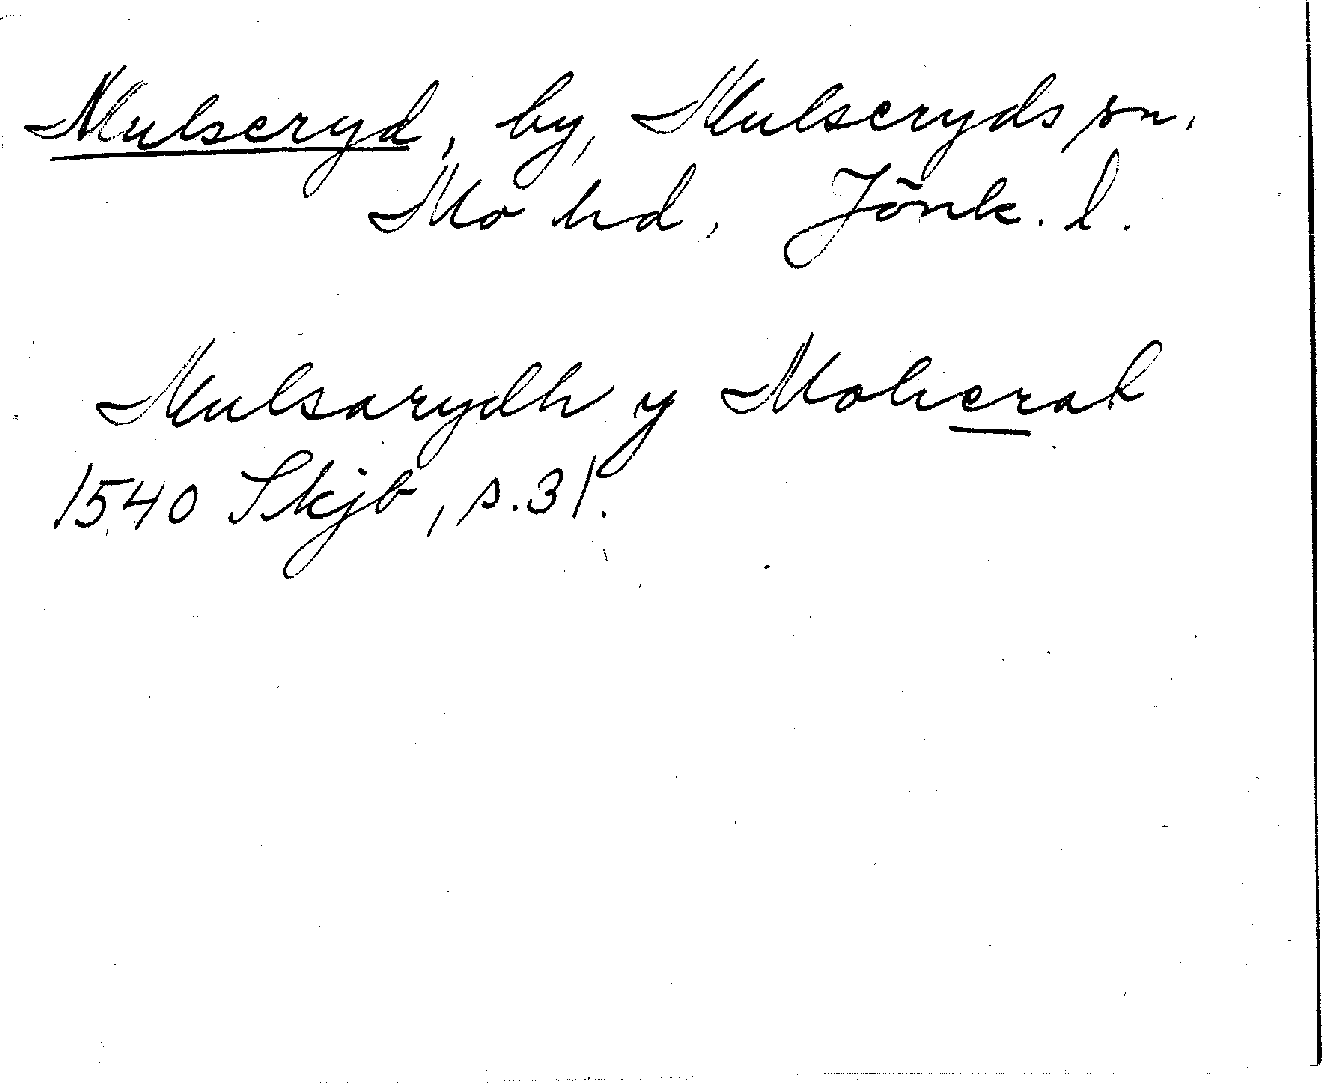 Mulseryd, by, Mulseryds sn,
Mo hd, Jönk. l.
Mulsarydh y Moherat
1540 Skjb, s. 31.